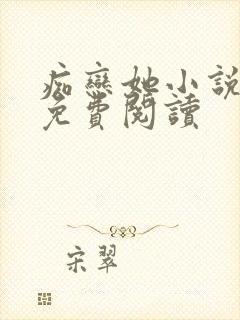 痴戀她小說
免費閱讀
宋翠